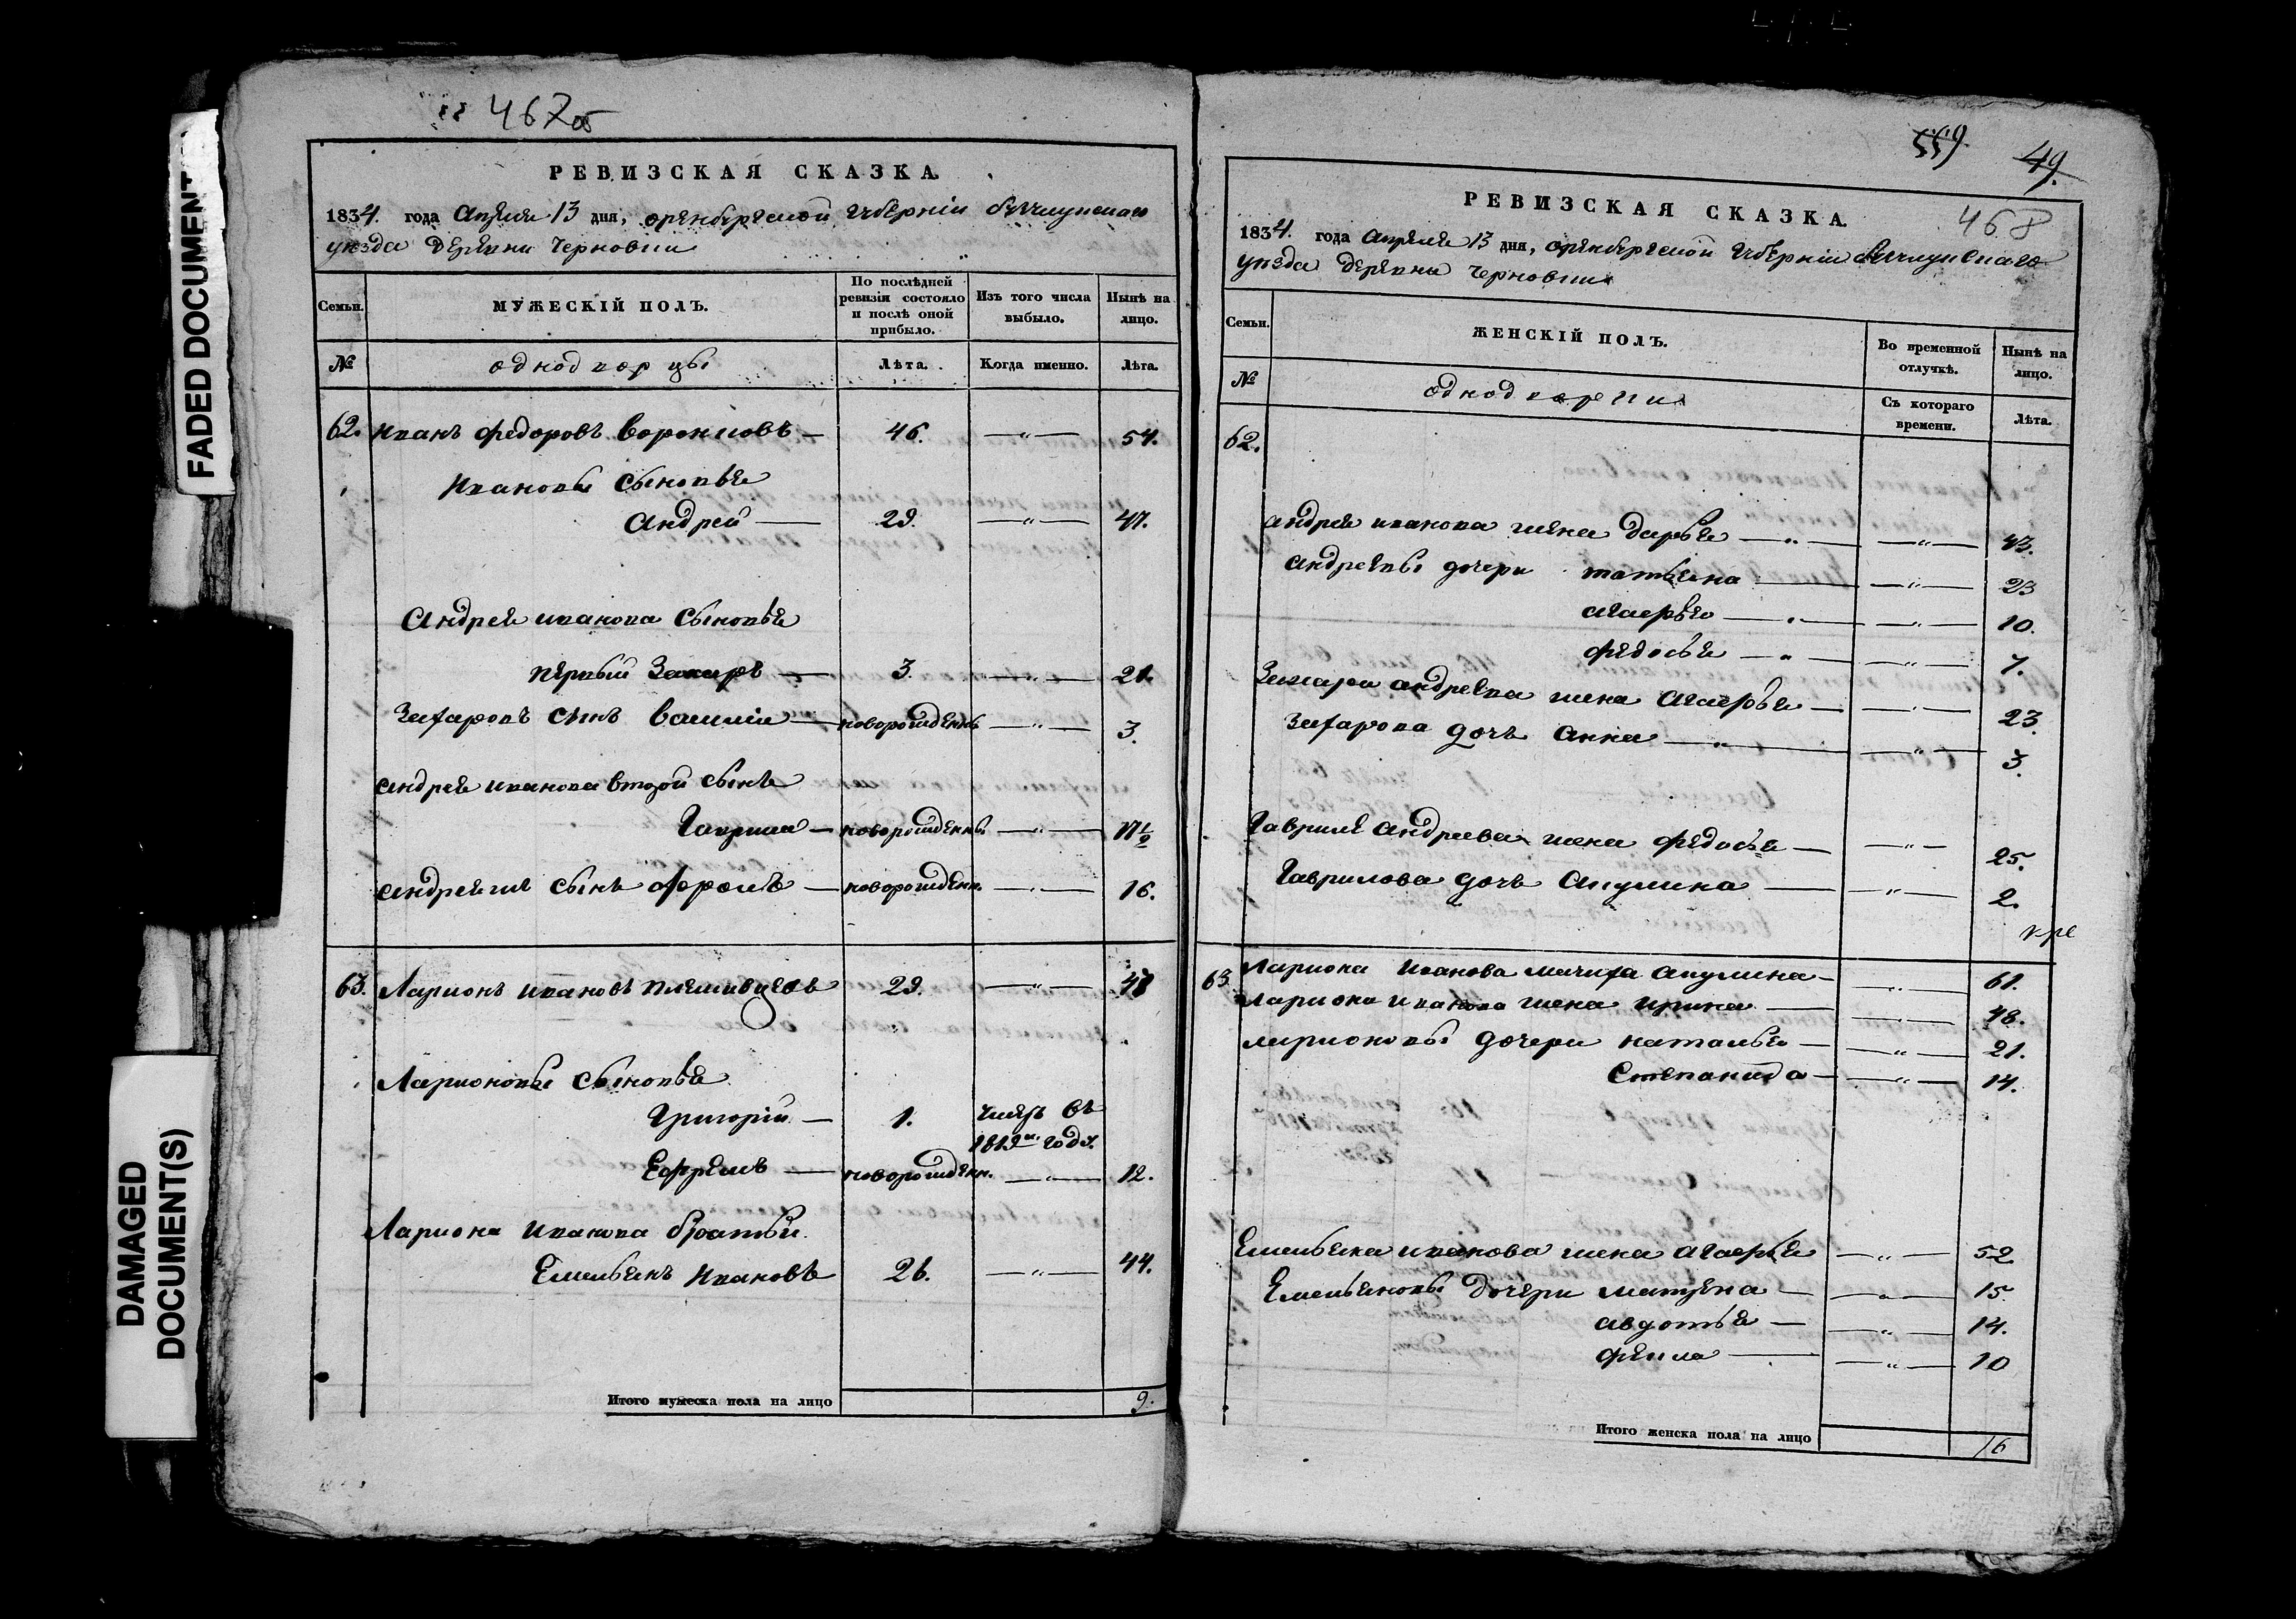 FADED DOCUMENT
DAMAGED
DOCUMENT(S)
467об
РЕВИЗСКАЯ СКАЗКА.
1834. года Апреля 13 дня, оренбургской губернии бугулминскаго
уезда деревни Черновки
Семьи.
МУЖЕСКІЙ ПОЛЪ.
По послѣдней
ревизіи состояло
и послѣ оной
прибыло.
Изъ того числа
выбыло.
Нынѣ на
лицо.
№
однодворцы
Лѣта.
Когда именно.
Лѣта.
62. Иванъ Федоровъ 46. —„— 
Ивановы сыновья
Андрей — 29. —„— 47.
Андрея иванова сыновья
первый Захаръ — 3. —„— 21.
Захаровъ сынъ василій — новорожденнъ —„— 3.
андрея иванова второй сынъ
Гаврила — новорожденнъ —„— 17½
андреяжъ сынъ фролъ — новорожденн. —„— 16.
63. Ларионъ ивановъ плешивцовъ 29. —„— 48
Ларионовы сыновья
Григорій — 1. умеръ въ
1819м. году.
Ефремъ — новорожденн. —„— 12.
Лариона иванова братья
Емельянъ ивановъ 26. —„— 44.
Итого мужеска пола на лицо 9.
559.
49.
468
РЕВИЗСКАЯ СКАЗКА.
1834. года апреля 13 дня, оренбургской губерніи
уезда деревни Черновки
Семьи.
ЖЕНСКІЙ ПОЛЪ.
Во временной
отлучкѣ.
Нынѣ на
лицо.
№
однодворки
Съ котораго
времени.
Лѣта.
62.
андрея иванова жена дарья —„— —„— 43.
андреевы дочери татьяна —„— 23
агафья —„— —„— 10.
федосья —„— —„— 7.
Захара андреева жена агафья — —„— 23.
захарова дочь анна —„— —„— 3.
Гаврилы андреева жена федосья — —„— 25.
Гаврилова дочь акулина — —„— 2.
63. Лариона иванова мачиха акулина — —„— 61.
Лариона иванова жена ирина — —„— 48.
ларионовы дочери наталья — —„— 21.
Степанида — —„— 14.
Емельяна иванова жена агафья —„— 52
Емельяновы дочери матрена — —„— 15.
авдотья — —„— 14.
фекла — —„— 10
Итого женска пола на лицо 16